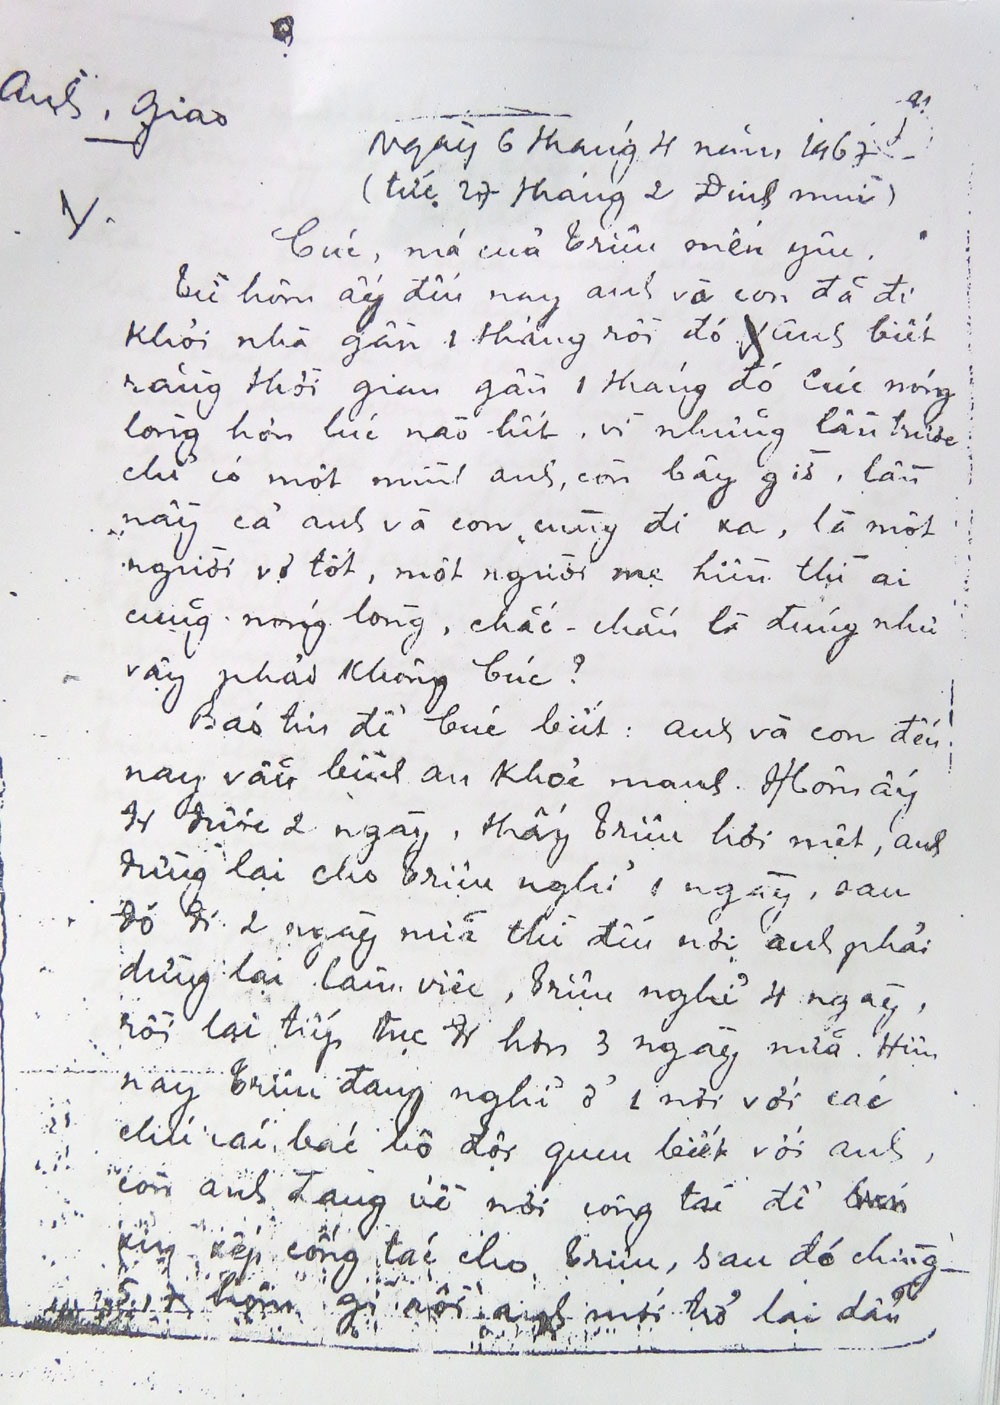 Anh, Giao
Ngày 6 tháng 4 năm 1967
(tức 27 tháng 2 Đinh mùi)
Cúc, má của Triều mến yêu.
Từ hôm ấy đến nay anh và con đã đi
khỏi nhà gần 1 tháng rồi đó, anh biết
rằng thời gian gần 1 tháng đó Cúc nóng
lòng hơn lúc nào hết, vì những lần trước
chỉ có một mình anh, còn bây giờ, lần
này cả anh và con cùng đi xa, là một
người vợ tốt, một người mẹ hiền thì ai
cũng nóng lòng, chắc-chắn là đúng như
vậy phải không Cúc?
Báo tin để Cúc biết: anh và con đến
nay vẫn bình an khỏe mạnh. Hôm ấy
đi được 2 ngày, thấy Triều hơi mệt, anh
dừng lại cho Triều nghỉ 1 ngày, sau
đó đi 2 ngày nữa thì đến nơi anh phải
dừng lại làm việc, Triều nghỉ 4 ngày,
rồi lại tiếp tục đi hơn 3 ngày nữa. Hiện
nay Triều đang nghỉ ở 1 nơi với các
chú các bác bộ đội quen biết với anh,
còn anh đang về nơi công tác để
xin xếp công tác cho Triều, sau đó chừng
5, 7 hôm gì rồi anh mới trở lại dẫn